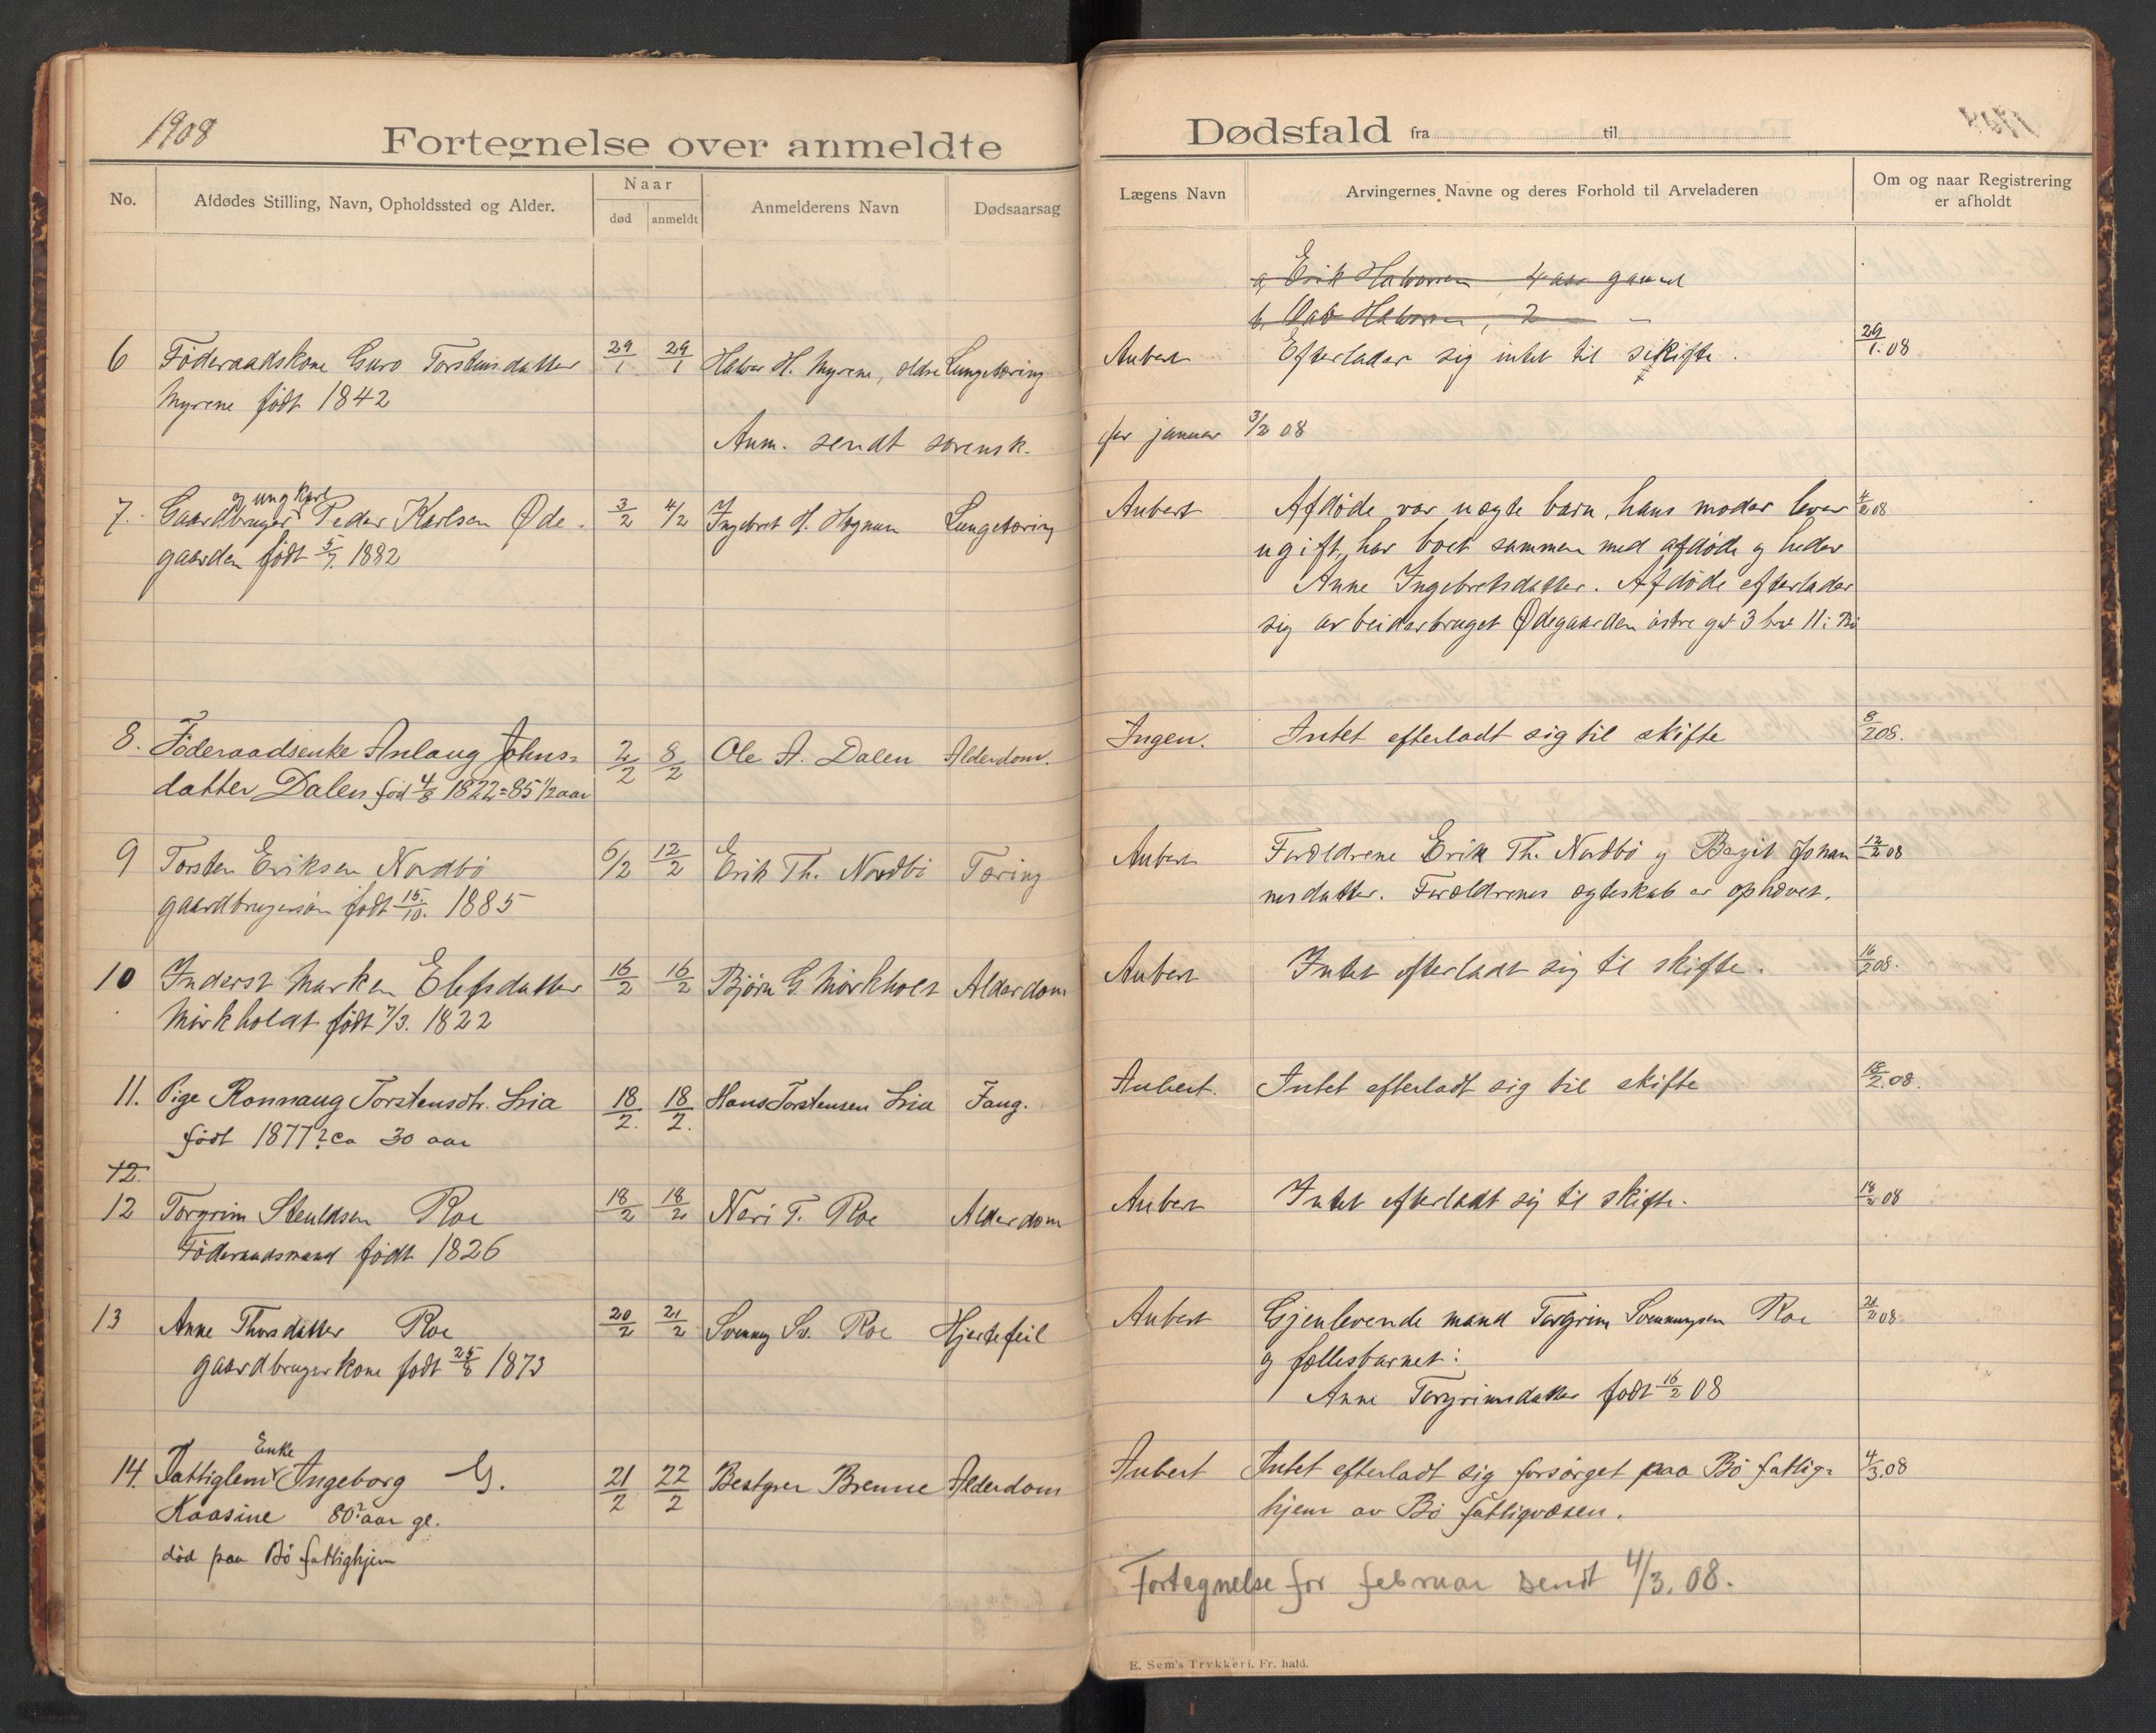 1908
Fortegnelse over anmeldte
No.
Afdødes Stilling, Navn, Opholdssted og Alder.
Naar
død
anmeldt
Anmelderens Navn
Dødsaarsag
6 Föderaadskone Guro Torstensdatter 29/1 29/1 Halvor H. Myrene, Lungetæring
Myrene født 1842
Anm. sendt sorensk.
og ungkarl
7. Gaardbruger Peder Karlsen Øde- 3/2 4/2 Ingebret H. Lungetæring
gaarden født 5/7. 1882
8. Föderaadsenke Anlaug Johns= 2/2 8/2 Ole A. Dalen Alderdom.
datter Dalen fød 4/8 1822=85 1/2 aar
9 Torsten Eriksen Nordbö 6/2 12/2 Erik Th. Nordbö Tæring
gaardbrugersön født 15/10. 1885
10 Inderst Marken Elefsdatter 16/2 16/2 Björn G. Mörkholt Alderdom
Mörkholdt født 7/3. 1822
11. Pige Rønnaug Torstensdtr. Lia 18/2. 18/2. Hans Torstensen Lia Tæring.
født 1877? ca 30 aar
12.
12 Torgrim Steuldsen Roe 18/2 18/2 Neri T. Roe Alderdom
Föderaadsmand født 1826
13 Anne Thorsdatter Roe 20/2 21/2 Svennung Sv. Roe Hjertefeil
gaardbrugerkone født 25/8 1873
Enke
14. Fattiglem Ingeborg G. 21/2 22/2 Bestyrer Brenne Alderdom
Kaasine 80? aar gl.
död paa Bö fattighjem
Dødsfald fra til
Lægens Navn
Arvingernes Navne og deres Forhold til Arveladeren
Om og naar Registrering
er afholdt
a, Erik Halvorsen 4 aar gammel
b, Halvorsen, 2 —
Aubert Efterlader sig intet til skifte. 29/1.08
for januar 3/2 08
Aubert Afdøde var uægte barn, hans moder lever 4/2 08
ugift, har boet sammen med afdøde og heder
Anne Ingebretsdatter. Afdøde efterlader
sig arbeiderbruget Ødegaarden östre gnr 3 bnr 11 i Bö
Ingen. Intet efterladt sig til skifte 8/2 08.
Aubert Forældrene Erik Th. Nordbö og Bergit Johan 12/2 08
nesdatter. Forældrenes ægteskab er ophævet.
Aubert Intet efterladt sig til skifte. 16/2 08.
Aubert. Intet efterladt sig til skifte 18/2.08.
Aubert Intet efterladt sig til skifte. 18/2 08
Aubert Gjenlevende mand Torgrim Svennungsen Roe 21/2 08.
og fællesbarnet:
Anne Torgrimsdatter født 16/2 08
Aubert Intet efterladt sig forsörget paa Bö fattig= 4/3.08
hjem av Bö fattigvæsen.
Fortegnelse for februar sendt 4/3.08.
E. Sem's Trykkeri, Fr. hald.